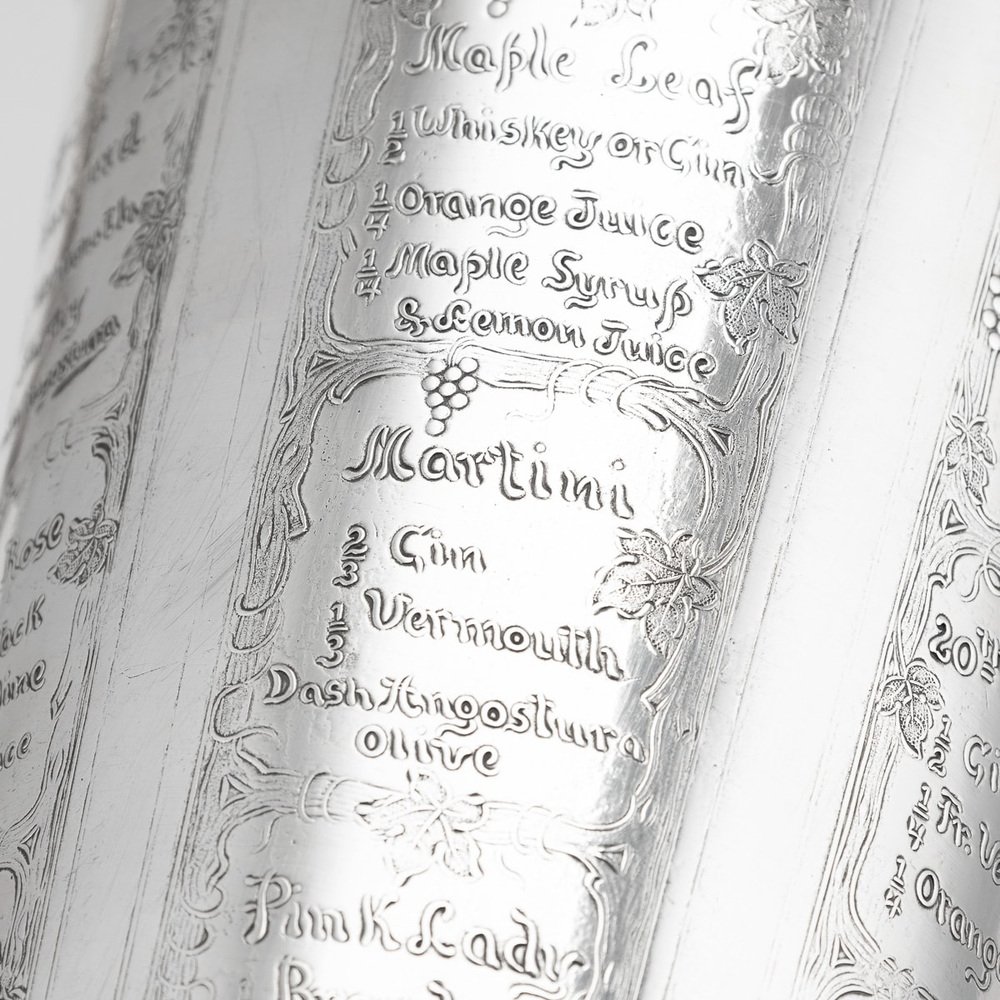 Maple Leaf
½ Whiskey or Gin
¼ Orange Juice
¼ Maple Syrup
& Lemon Juice
Martini
⅔ Gin
⅓ Vermouth
Dash Angostura
Olive
Pink Lady
Rose
20th
½ Gi
¼ Fr. Ve
¼ Orang